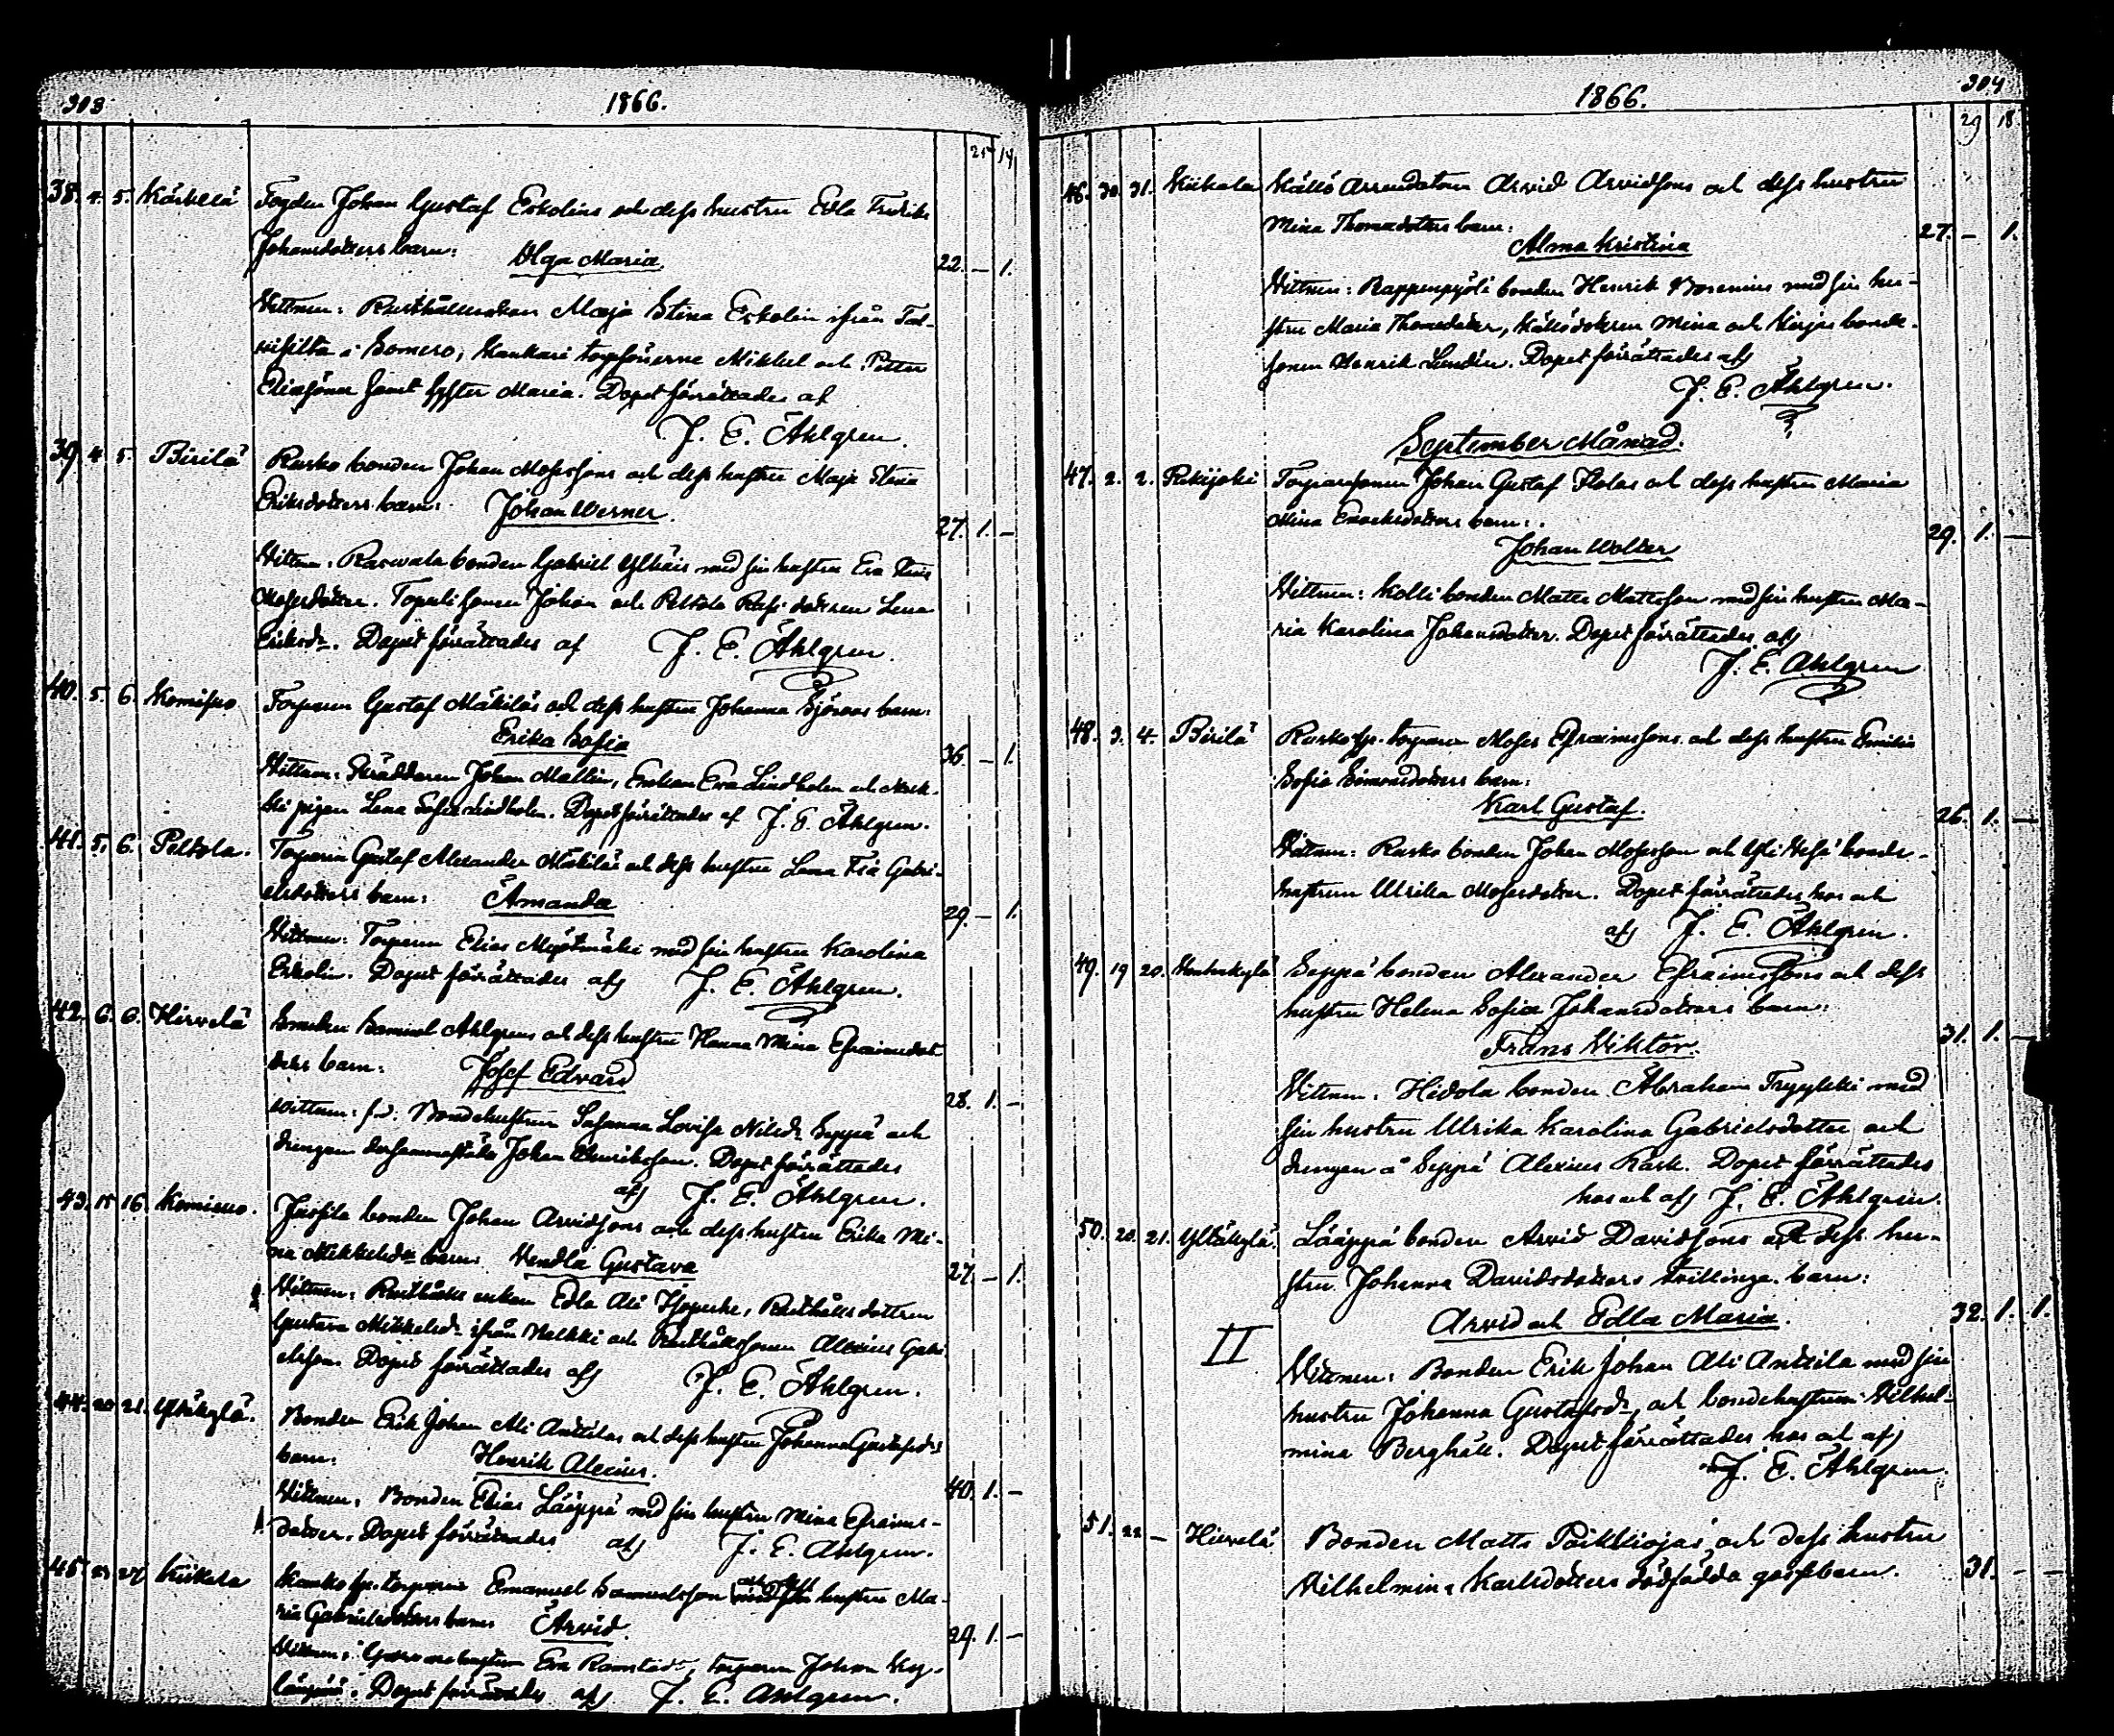 303 1866.
25 14
38. 4. 5. Kärkelä Fogden Johan Gustaf Eskolins och dess hustru Edla Fredrika
Johansdotters barn: Olga Maria 22. – 1.
Vittnen: Rusthållerskan Maja Stina Eskolin ifrån
i Somero, torpsönerne Mikkel och Petter
Eliesöner samt syster Maria. Dopet förrättades af
J. E. Ahlgren.
39. 4. 5. Pirilä Rusko bonden Johan Mosessons och dess hustru Maja Stina
Eriksdotters barn: Johan Werner. 27. 1. –
Vittnen: bonden Gabriel med sin hustru Eva Stina
Mosesdotter. Johan och Peltola dottren Lena
Eriksd. Dopet förrättades af J. E. Ahlgren.
40. 5. 6. Komisuo Torparen Gustaf Mäkiläs och dess hustru Johanna Sjöroos barn:
Erika Sofia 36. – 1.
Vittnen: Skräddaren Johan Mallin, Enkan Eva Lindholm och
pigan Lena Sofia Lindholm. Dopet förrättades af J. E. Ahlgren.
41. 5. 6. Peltola. Torparen Gustaf Alexander Mäkiläs och dess hustru Lena Fia Gabri-
elsdotters barn: Amanda 29. – 1.
Vittnen: Torparen Elias med sin hustru Karolina
Eskolin. Dopet förrättades af J. E. Ahlgren.
42. 6. 6. Hirvelä Smeden Samuel Ahlgrens och dess hustru Hanna Mina Efraimsdot-
ters barn: Josef Edvard 28. 1. –
Vittnen: Bondehustrun Susanna Lovisa Nilsd. Seppä och
drengen dersammastädes Johan Henriksson. Dopet förrättades
af J. E. Ahlgren.
43. 15 16. Komisuo. bonden Johan Arvidssons och dess hustru Erika Mi-
na Mikkelsd. barn: Hendla Gustava 27. – 1.
Vittnen: Rusthålls enkan Edla Ali , Rusthålls dottren
Gustava Mikkelsd. ifrån och Rusthålls sonen Alexius Gabri-
elsson. Dopet förrättades af J. E. Ahlgren.
44. 20 21. Yltäkylä. Bonden Erik Johan Ali Anttilas och dess hustru Johanna Gustafsd:s
barn: Henrik Alexius. 40. 1. –
Vittnen: Bonden Elias Lääppä med sin hustru Mina Efraims-
dotter. Dopet förrättades af J. E. Ahlgren.
45. 27 Kiikala torparen Emanuel Samuelsson och dess hustru Ma-
ria Gabrielsdotters barn Arvid. 29. 1. –
Vittnen: hustru Eva , torparen Johan
Dopet förrättades af J. E. Ahlgren.
1866. 304
29 18.
46. 30. 31. Kiikala Källö Arrendatorn Arvid Arvidssons och dess hustru
Mina Thomasdotters barn: 27. – 1.
Alma Kristina
Vittnen: bonden Henrik med sin hu-
stru Maria Thomasdotter, Källö dottren Mina och bonde-
sonen Henrik Lundén. Dopet förrättades af
J. E. Ahlgren.
September Månad.
47. 2. 2. Rekijoki Torparesonen Johan Gustaf Flolas och dess hustru Maria
Mina Enocksdotters barn: 29. 1. –
Johan Wolter
Vittnen: Kolli bonden Matts Mattsson med sin hustru Ma-
ria Karolina Johansdotter. Dopet förrättades af
J. E. Ahlgren
48. 3. 4. Pirilä Rusko torparen Moses Efraimssons och dess hustru Emilia
Sofia Simonsdotters barn:
Karl Gustaf. 26. 1. –
Vittnen: Rusko bonden Johan Mosesson och bonde-
hustrun Ulrika Mosesdotter. Dopet förrättades hos och
af J. E. Ahlgren.
49. 19 20. Hanhikylä Seppä bonden Alexander Efraimssons och dess
hustru Helena Sofia Johansdotters barn:
Frans Viktor. 31. 1. –
Vittnen: Hidola bonden Abraham Fryylkki med
sin hustru Ulrika Karolina Gabrielsdotter och
drengen å Seppä Alexius Rask. Dopet förrättades
hos och af J. E. Ahlgren.
50. 20. 21. Yltäkylä. Lääppä bonden Arvid Davidssons och dess hu-
stru Johanna Davidsdotters tvillinge barn:
Arvid och Edla Maria. 32. 1. 1.
II Vittnen: Bonden Erik Johan Ali Anttila med sin
hustru Johanna Gustafsd., och bondehustrun Vilhel-
mina Berghäll. Dopet förrättades hos och af
J. E. Ahlgren.
51. 22. – Hirvelä Bonden Matts Poikkiojas och dess hustru
Vilhelmina Karlsdotters dödfödda gossebarn. 31. – –